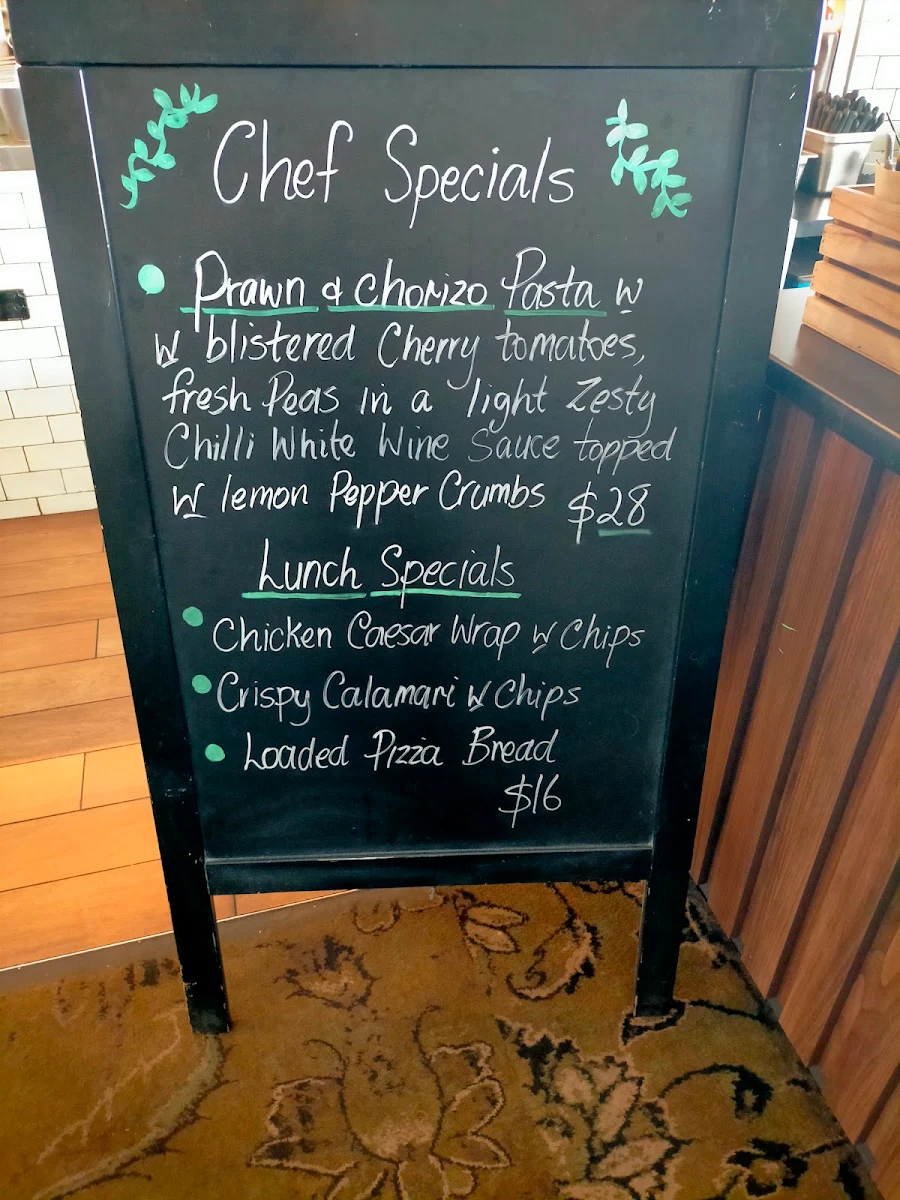 Chef Specials
Prawn & Chorizo Pasta w
w blistered Cherry tomatoes,
fresh Peas in a light Zesty
Chilli White Wine Sauce topped
w lemon Pepper Crumbs $28
Lunch Specials
Chicken Caesar Wrap w Chips
Crispy Calamari w Chips
Loaded Pizza Bread
$16